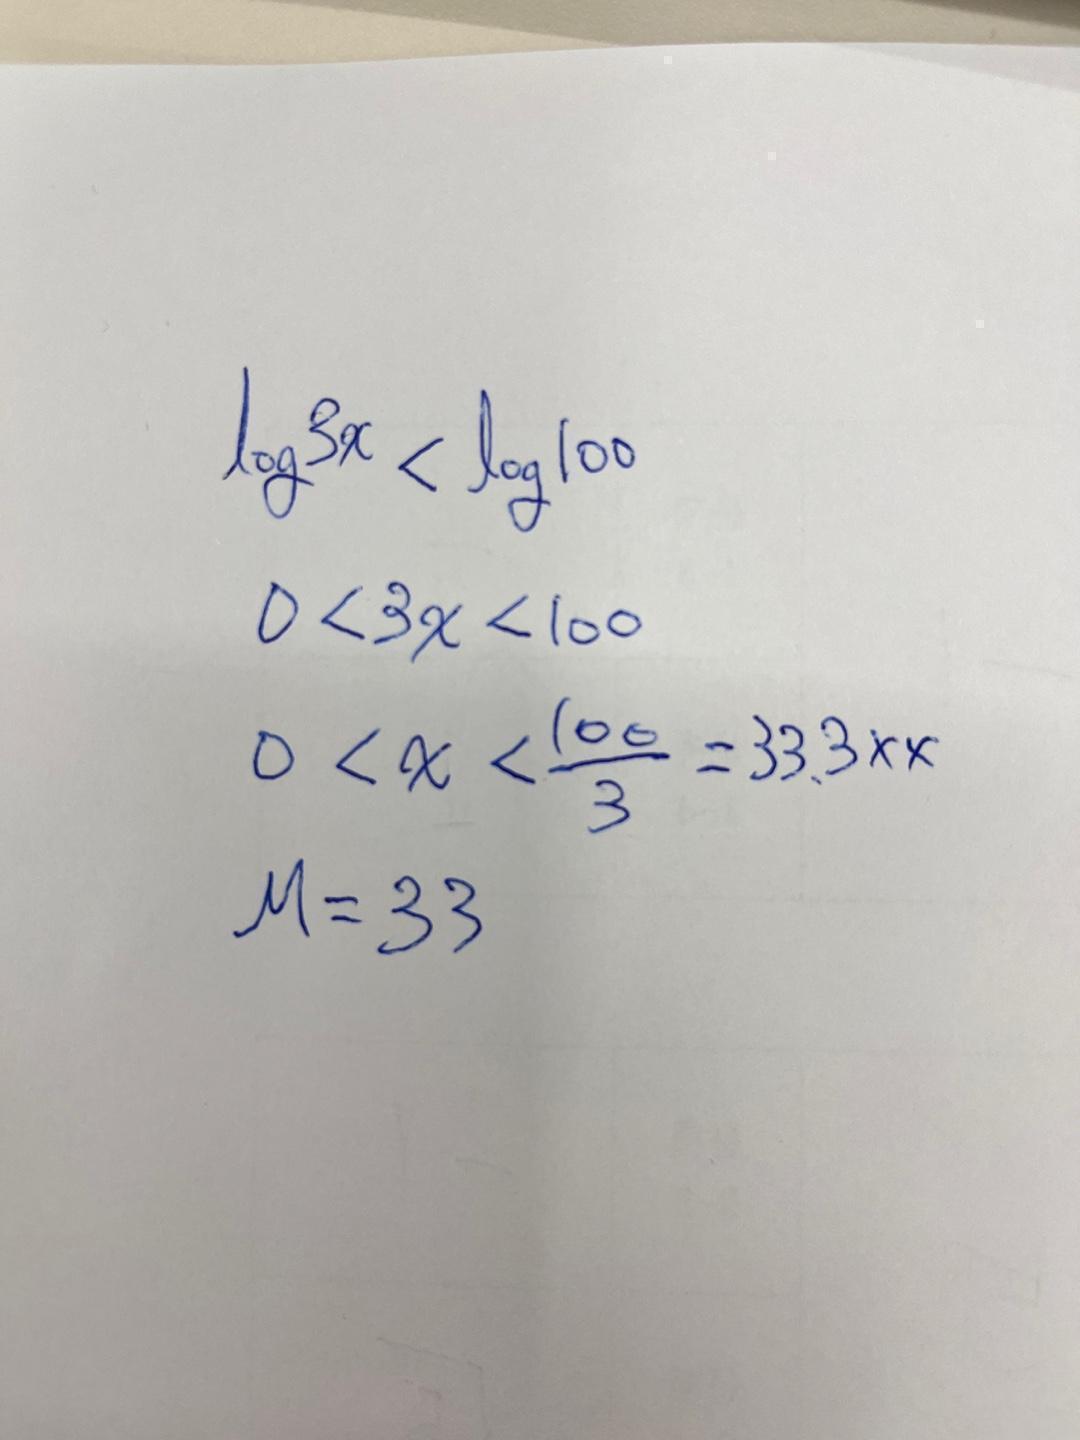 log 3x < log 100
0 < 3x < 100
0 < x < 100/3 = 33.3xx
M = 33